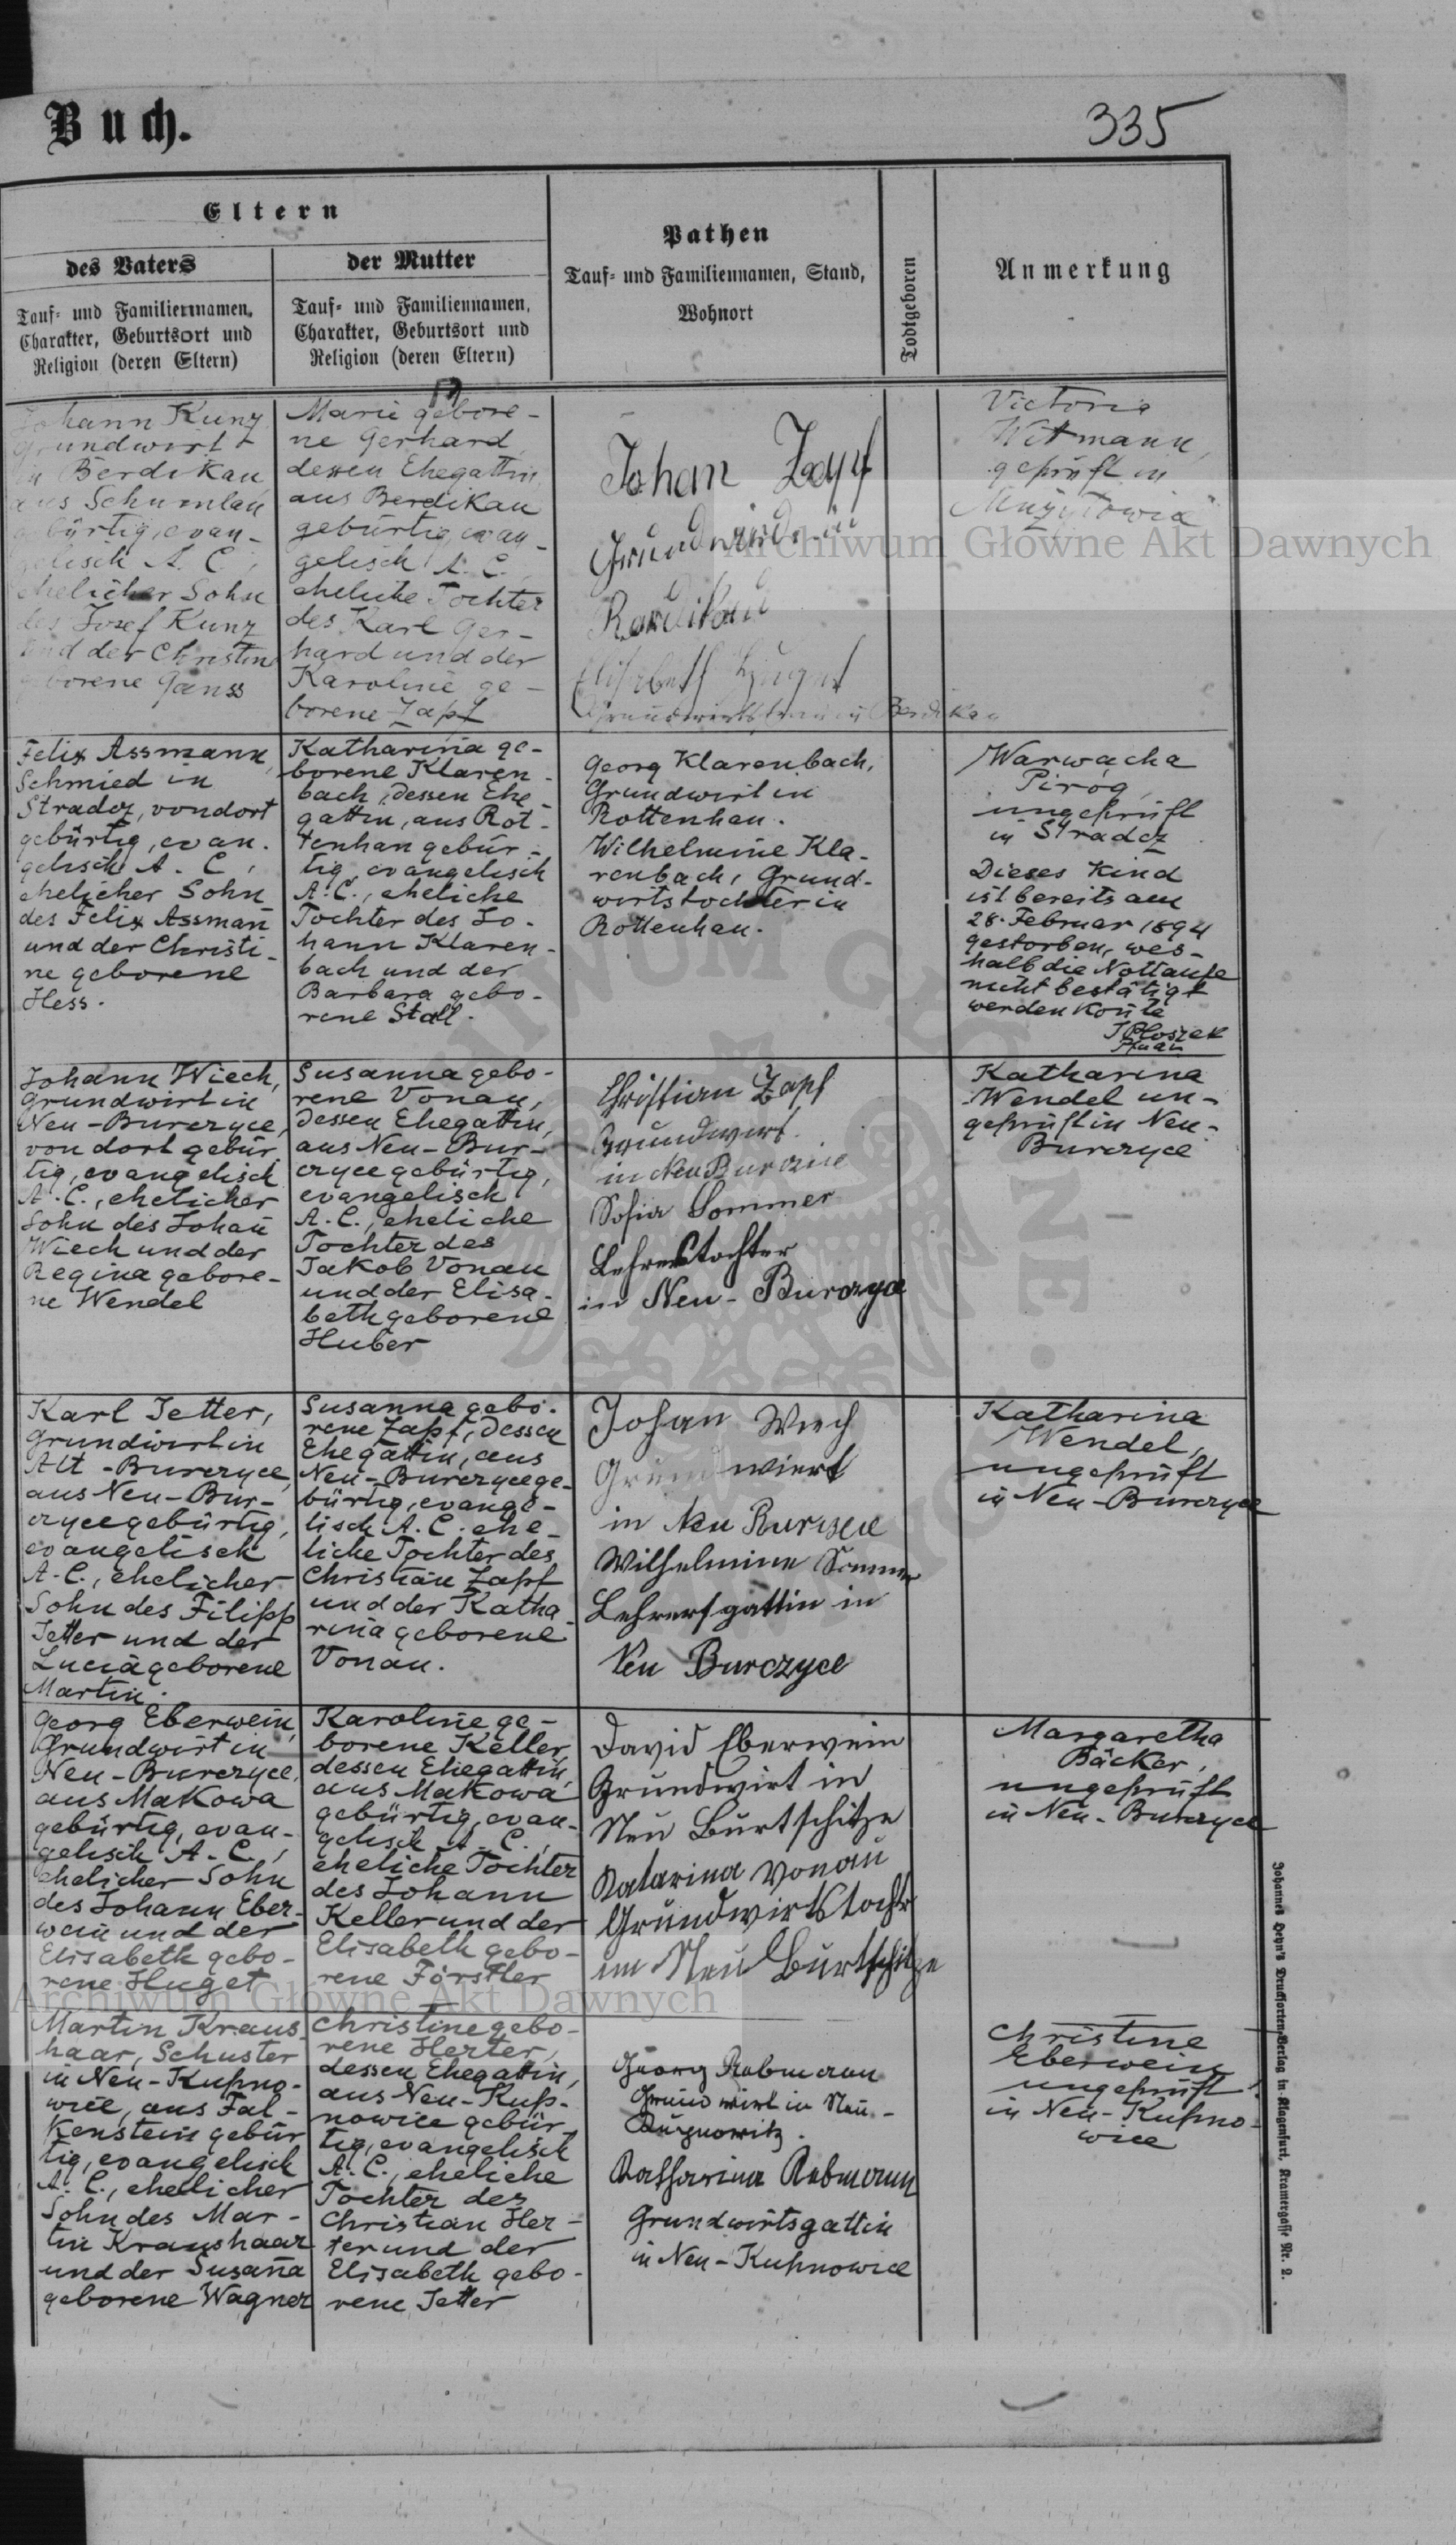 Buch.
335
Eltern
des Vaters
Tauf- und Familiennamen,
Charakter, Geburtsort und
Religion (deren Eltern)
der Mutter
Tauf- und Familiennamen,
Charakter, Geburtsort und
Religion (deren Eltern)
Pathen
Tauf- und Familiennamen, Stand,
Wohnort
Todtgeboren
Anmerkung
Johann Kunz
Grundwirt
in Berdikau
aus Schumlau
gebürtig, evan-
gelisch A. C.,
ehelicher Sohn
des Josef Kunz
und der Christine
geborene Ganss
Marie gebore-
ne Gerhard,
dessen Ehegattin,
aus Berdikau
gebürtig, evan-
gelisch A. C.,
eheliche Tochter
des Karl Ger-
hard und der
Karoline ge-
borene Zapf
Johan Zapf
Grundwirt in
Berdikau
Elisabeth Huget
Berdikau
Victoria
Witmann,
geprüft in
Felix Assmann,
Schmied in
Stradcz, von dort
gebürtig, evan-
gelisch A. C.,
ehelicher Sohn
des Felix Assmañ
und der Christi-
ne geborene
Hess.
Katharina ge-
borene Klaren-
bach, dessen Ehe-
gattin, aus Rot-
tenhan gebür-
tig, evangelisch
A. C., eheliche
Tochter des Jo-
hann Klaren-
bach und der
Barbara gebo-
rene Stall.
Georg Klarenbach,
Grundwirt in
Rottenhan.
Wilhelmine Kla-
renbach, Grund-
wirtstochter in
Rottenhan.
Warwacha
Pirog,
ungeprüft
in Stradcz
Dieses Kind
ist bereits am
28. Februar 1894
gestorben, wes-
halb die Nottaufe
nicht bestätigt
werden koñte
Johann Wiech,
Grundwirt in
Neu-Burczyce,
von dort gebür-
tig, evangelisch
A. C., ehelicher
Sohn des Johañ
Wiech und der
Regina gebore-
ne Wendel
Susanna gebo-
rene Vonau,
dessen Ehegattin,
aus Neu-Bur-
czyce gebürtig,
evangelisch
A. C., eheliche
Tochter des
Jakob Vonau
und der Elisa-
beth geborene
Huber
Christian Zapf
Grundwirt
in Neu Burczyce
Sofia Sommer
Lehrerstochter
in Neu-Burczyce
Katharina
Wendel un-
geprüft in Neu-
Burczyce
Karl Jetter,
Grundwirt in
Alt-Burczyce,
aus Neu-Bur-
czyce gebürtig,
evangelisch
A. C., ehelicher
Sohn des Filipp
Jetter und der
Lucia geborene
Martin.
Susanna gebo-
rene Zapf, dessen
Ehegattin, aus
Neu-Burczyce ge-
bürtig, evange-
lisch A. C. ehe-
liche Tochter des
Christian Zapf
und der Katha-
rina geborene
Vonau.
Johan Wiech
Grundwiert
in Neu Burczyce
Wilhelmine Sommer
Lehrersgattin in
Neu Burczyce
Katharina
Wendel,
ungeprüft
in Neu-Burczyce
Georg Eberwein,
Grundwirt in
Neu-Burczyce,
aus Makowa
gebürtig, evan-
gelisch A. C.,
ehelicher Sohn
des Johann Eber-
wein und der
Elisabeth gebo-
rene Huget
Karoline ge-
borene Keller,
dessen Ehegattin,
aus Makowa
gebürtig, evan-
gelisch A. C.,
eheliche Tochter
des Johann
Keller und der
Elisabeth gebo-
rene Förstler
David Eberwein
Grundwirt in
Neu Burtschitze
Katarina Vonau
Grundwirtstochtr
im Neu Burtschitze
Margaretha
Bäcker,
ungeprüft
in Neu-Burczyce
Martin Kraus-
haar, Schuster
in Neu-Kupno-
wice, aus Fal-
kenstein gebür-
tig, evangelisch
A. C., ehelicher
Sohn des Mar-
tin Kraushaar
und der Susaña
geborene Wagner
Christine gebo-
rene Herter,
dessen Ehegattin,
aus Neu-Kup-
nowice gebür-
tig, evangelisch
A. C., eheliche
Tochter des
Christian Her-
ter und der
Elisabeth gebo-
rene Jetter
Georg Rebmann
Grundwirt in Neu-
Kupnowitz.
Katharina Rebmann
Grundwirtsgattin
in Neu-Kupnowice
Christine
Eberwein
ungeprüft
in Neu-Kupno-
wice
Johannes Heyn's Drucksorten-Verlag in Klagenfurt, Kramergasse Nr. 2.
Archiwum Główne Akt Dawnych
Archiwum Główne Akt Dawnych